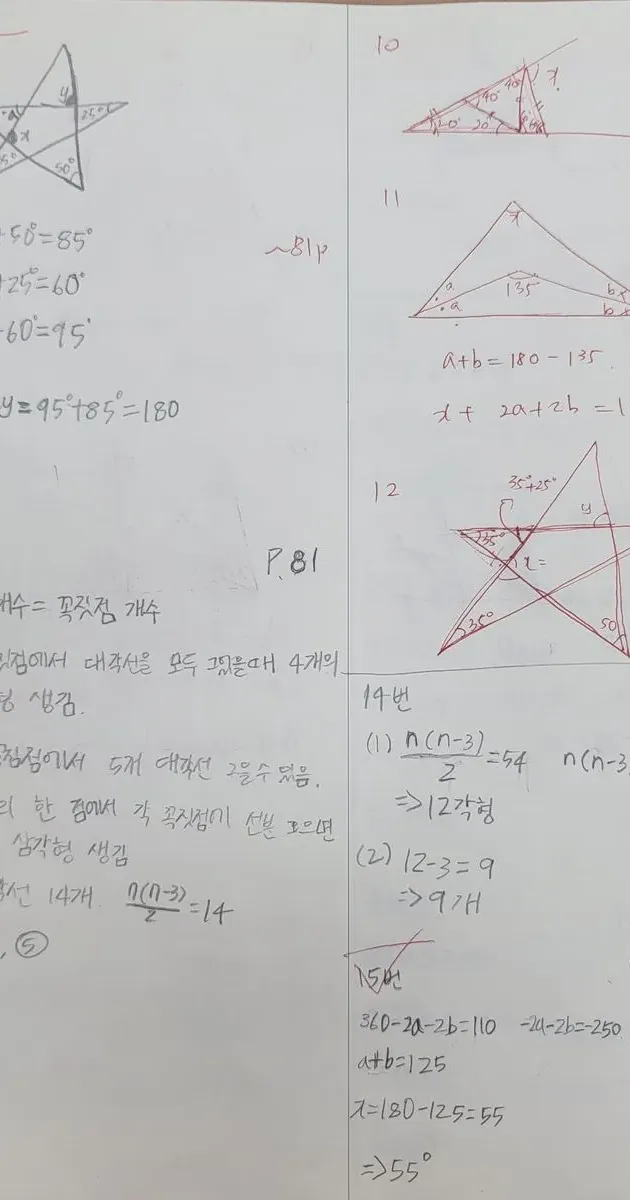 a
y
25°
x
5°
50°
+50°=85°
+25°=60°
60°=95°
y=95°+85°=180
~81p
P.81
개수= 꼭짓점 개수
짓점에서 대각선을 모두 그렸을때 4개의
형 생김.
꼭짓점에서 5개 대각선 그을수 있음.
의 한 점에서 각 꼭짓점이 선분 모으면
삼각형 생김
각선 14개. n(n-3)/2=14
, ⑤
10
40°
40°
x
20°
20°
11
x
a
a
135°
b
b
a+b=180-135
x+ 2a+2b=1
12
35°+25°
y
35°
x=
35°
50
14번
(1) n(n-3)/2=54 n(n-3
=>12각형
(2) 12-3=9
=>9개
15번
360-2a-2b=110 -2a-2b=-250
a+b=125
x=180-125=55
=>55°